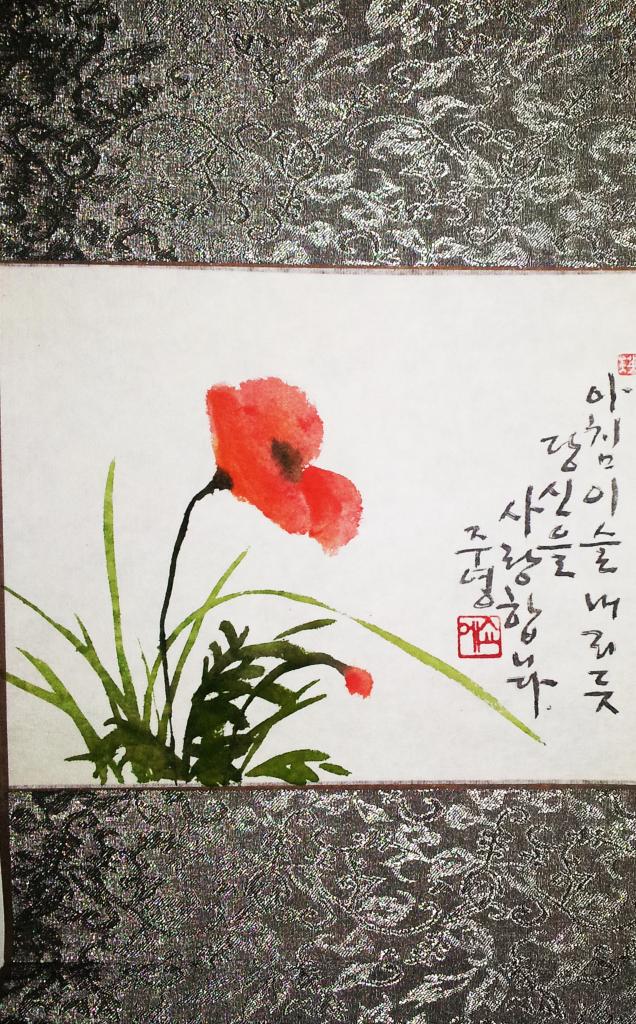 아침이슬 내리듯
당신을
사랑합니다.
준영